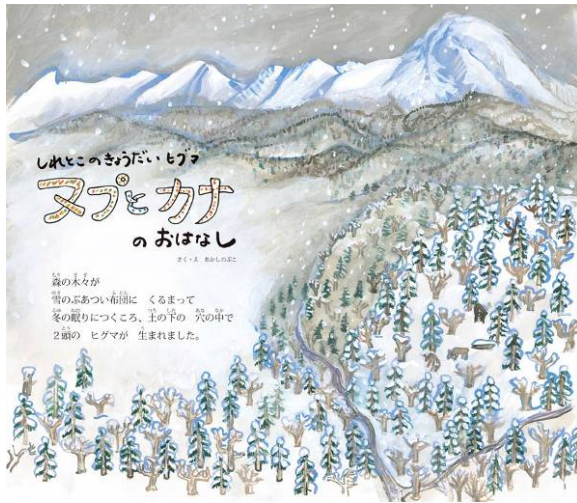 しれとこのきょうだいヒグマ
ヌプとカナ
のおはなし
さく・え あかしのぶこ
森の木々が
雪のぶあつい布団に くるまって
冬の眠りにつくころ、土の下の 穴の中で
2頭の ヒグマが 生まれました。